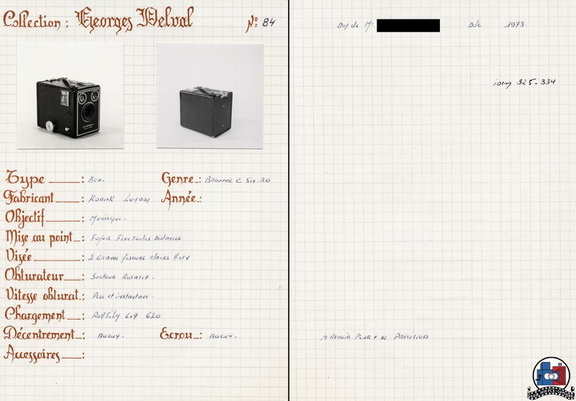 Collection : Georges Delval Nº 84
Type : Box.
Genre : Brownie C Six-20
Fabricant : Kodak London
Année :
Objectif : Ménisque.
Mise au point : Foyer Fixe toutes distances
Visée : 2 Grands viseurs clairs H et V
Obturateur : Secteur Rotatif.
Vitesse obturat. : Pose et instantané.
Chargement : Rollfilm 6x9 620
Décentrement : aucun.
Ecrou : aucun.
Accessoires :
Don de Mr Déc 1973.
idem 325-334
A Revoir Pour + de Précisions